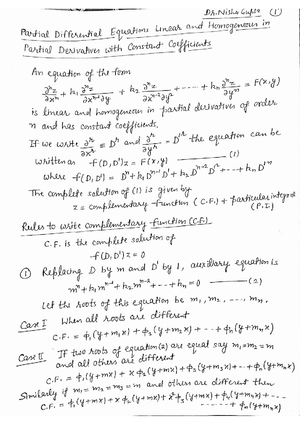 Dr. Nisha Gupta (1)
Partial Differential Equations Linear and Homogeneous in
Partial Derivatives with Constant Coefficients
An equation of the form
∂ⁿz/∂xⁿ + k₁ ∂ⁿz/∂xⁿ⁻¹∂y + k₂ ∂ⁿz/∂xⁿ⁻²∂y² + ····· + kₙ ∂ⁿz/∂yⁿ = F(x,y)
is linear and homogeneous in partial derivatives of order
n and has constant coefficients.
If we write ∂ⁿ/∂xⁿ = Dⁿ and ∂ʳ/∂yʳ = D'ʳ the equation can be
written as f(D,D')z = F(x,y) ——— (1)
where f(D,D') = Dⁿ + k₁Dⁿ⁻¹D' + k₂Dⁿ⁻²D'² + ··· + kₙD'ⁿ
The complete solution of (1) is given by
z = complementary function (C.F.) + particular integral
(P.I)
Rules to write Complementary Function (C.F.)
C.F. is the complete solution of
f(D,D')z = 0
(1) Replacing D by m and D' by 1, auxiliary equation is
mⁿ + k₁mⁿ⁻¹ + k₂mⁿ⁻² + ··· + kₙ = 0 ——— (2)
Let the roots of this equation be m₁, m₂, ···· mₙ.
Case I When all roots are different
C.F. = φ₁(y+m₁x) + φ₂(y+m₂x) + ··· + φₙ(y+mₙx)
Case II If two roots of equation (2) are equal say m₁=m₂=m
and all others are different
C.F. = φ₁(y+mx) + xφ₂(y+mx) + φ₃(y+m₃x) + ··· + φₙ(y+mₙx)
Similarly if m₁=m₂=m₃=m and others are different then
C.F. = φ₁(y+mx) + xφ₂(y+mx) + x²φ₃(y+mx) + φ₄(y+m₄x) + ······
······ + φₙ(y+mₙx)